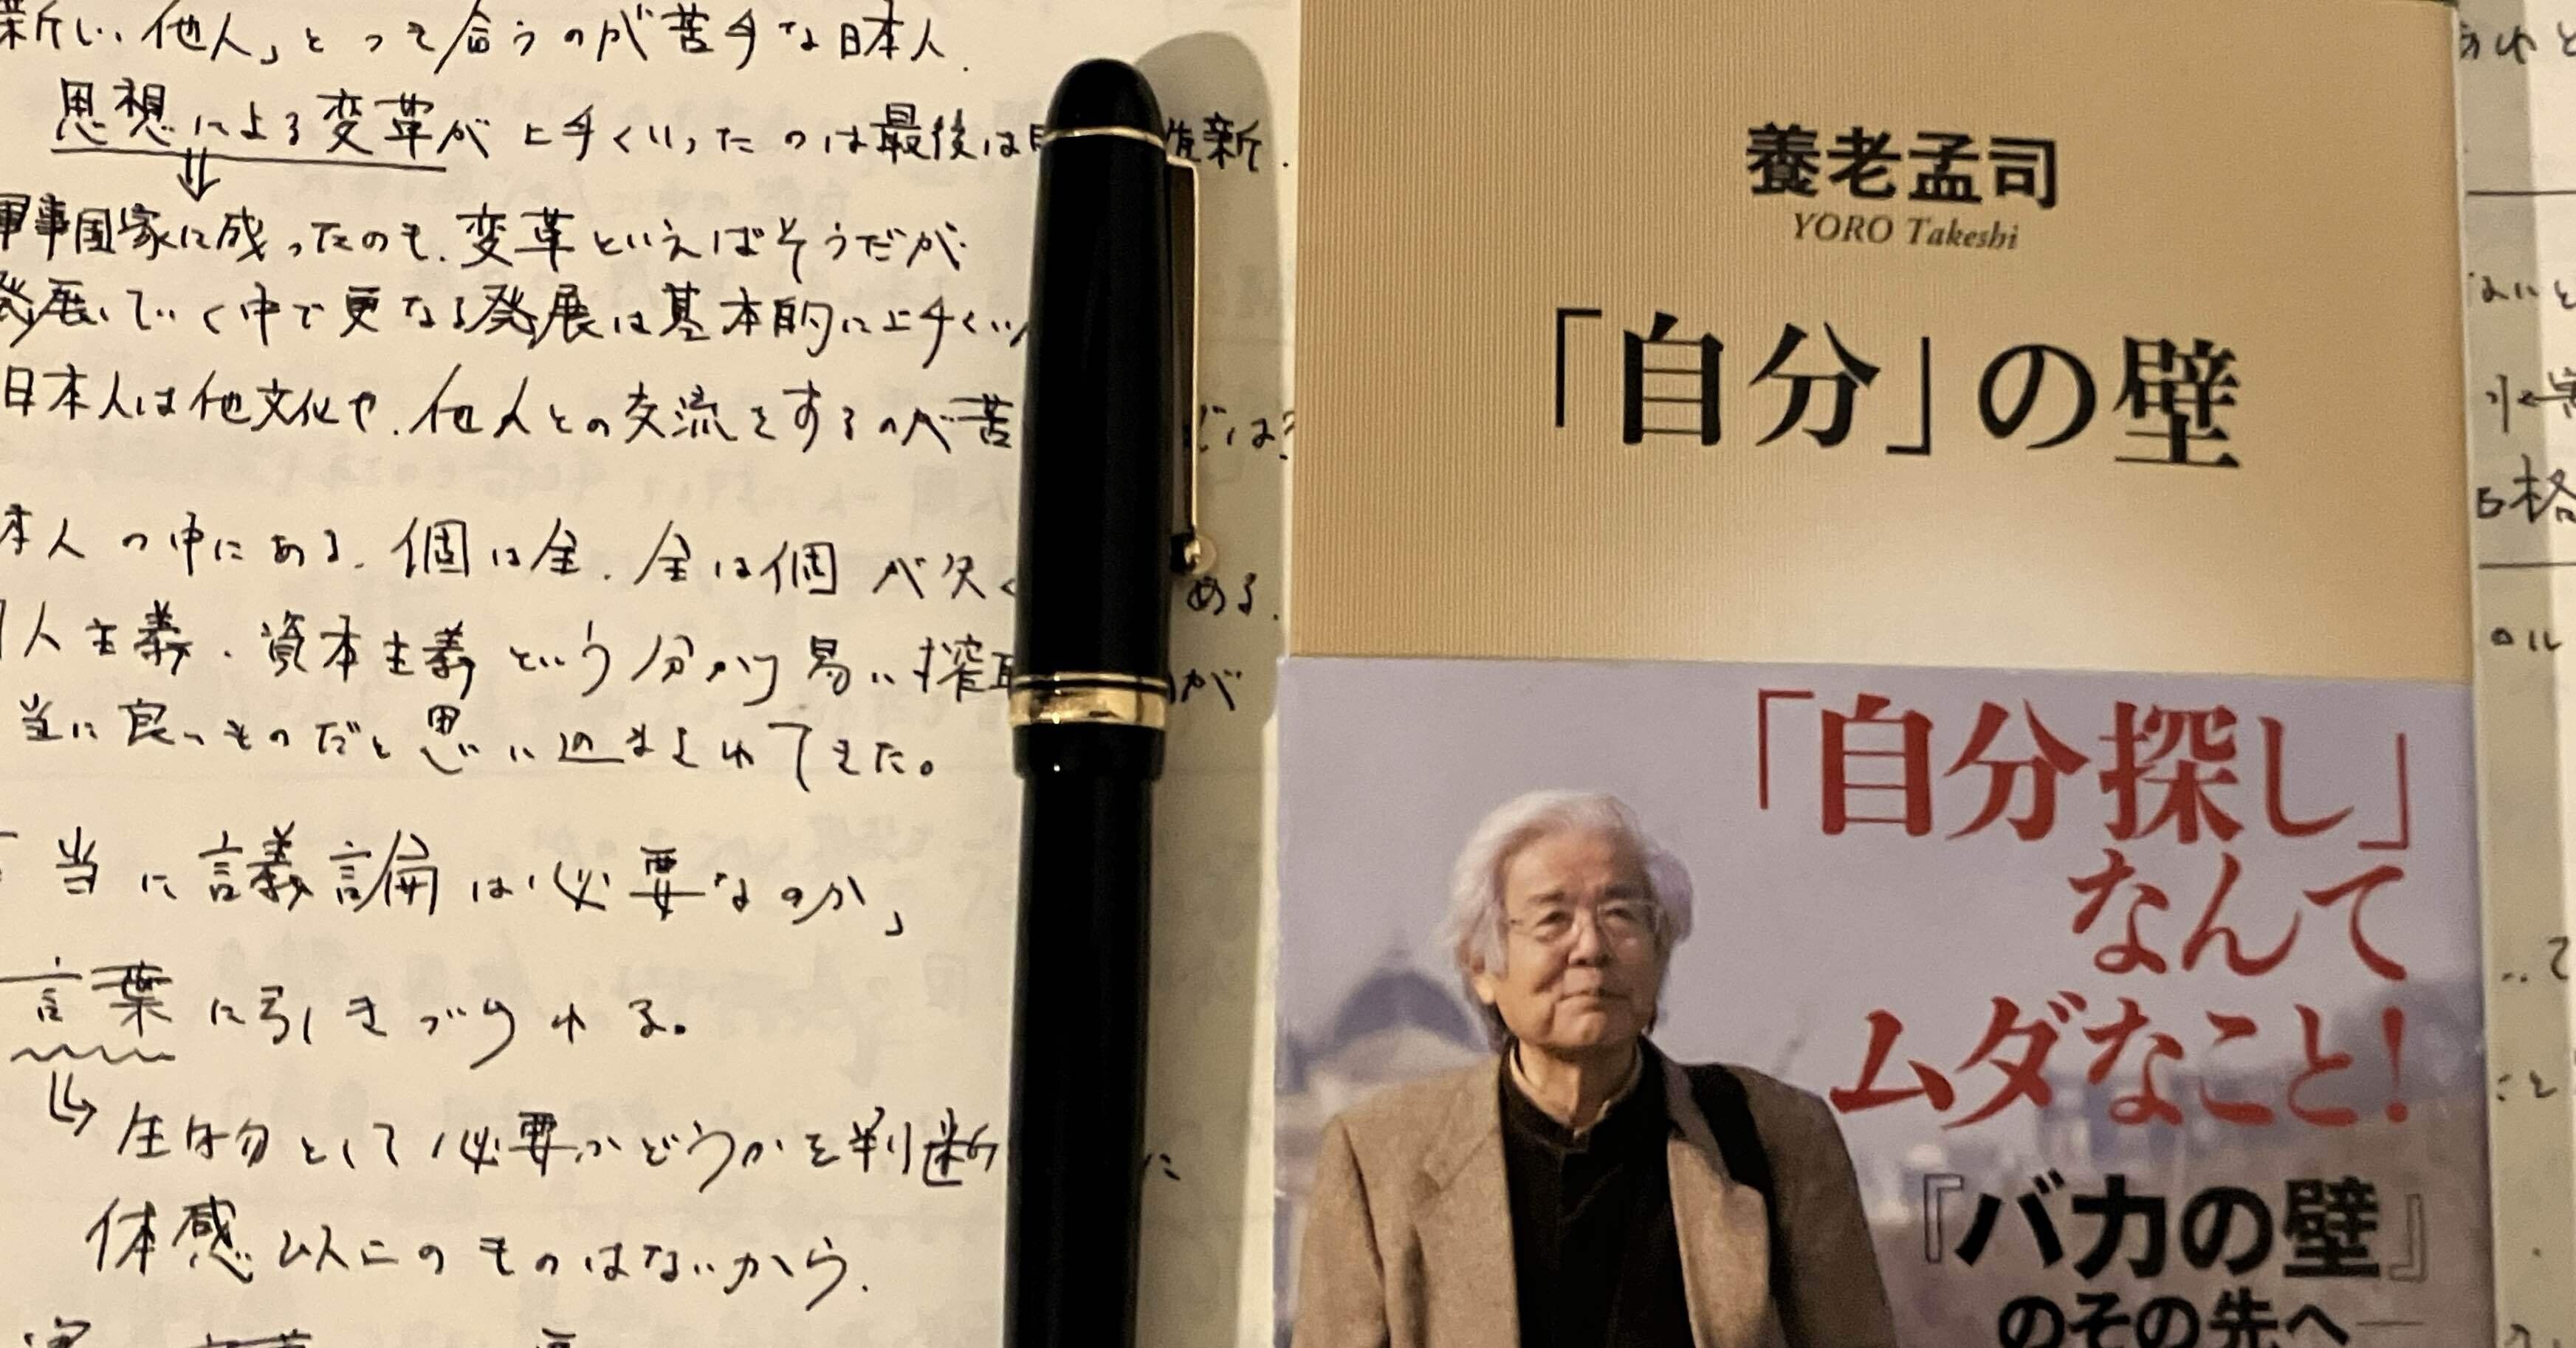 新しい他人」とつき合うのが苦手な日本人.
思想による変革が上手くいったのは最後は 維新.
軍事国家に成ったのも、変革といえばそうだが
発展していく中で更なる発展は基本的に上手くい
日本人は他文化や、他人との交流をするのが苦 では?
本人の中にある、個は全、全は個が欠 ある.
人主義、資本主義という分かり易い搾取 が
当に良いものだと思い込まされてきた。
当に議論は必要なのか」
言葉に引きづられる。
生物として必要かどうかを判断 に
体感以上のものはないから.
養老孟司
YORO Takeshi
「自分」の壁
「自分探し」
なんて
ムダなこと!
『バカの壁』
のその先へ—